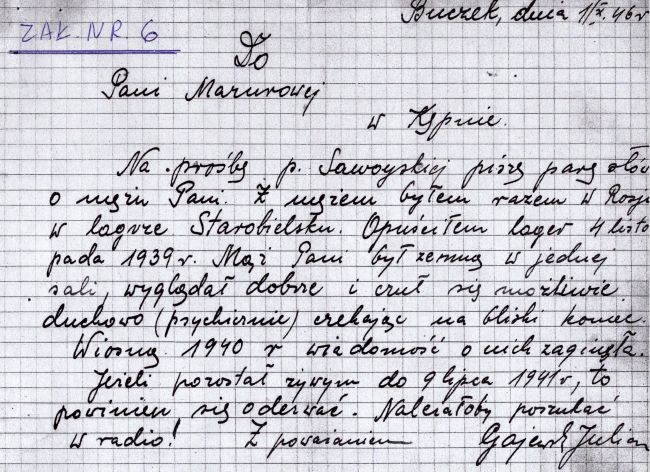 Buczek, dnia 1/X. 46 r
ZAŁ. NR. 6
Do
Pani Mazurowej
w Kępnie.
Na prośbę p. Sawoyskiej piszę parę słów
o mężu Pani. Z mężem byłem razem w Rosji
w lagrze Starobielsku. Opuściłem lager 4 listo
pada 1939 r. Mąż Pani był zemną w jednej
sali, wyglądał dobrze i czuł się możliwie
duchowo (psychicznie) czekając na bliski koniec.
Wiosną 1940 r wiadomość o nich zaginęła.
Jeżeli pozostał żywym do 9 lipca 1941 r, to
powinien się oderwać. Należałoby poszukać
w radio! Z poważaniem Gajewski Julian